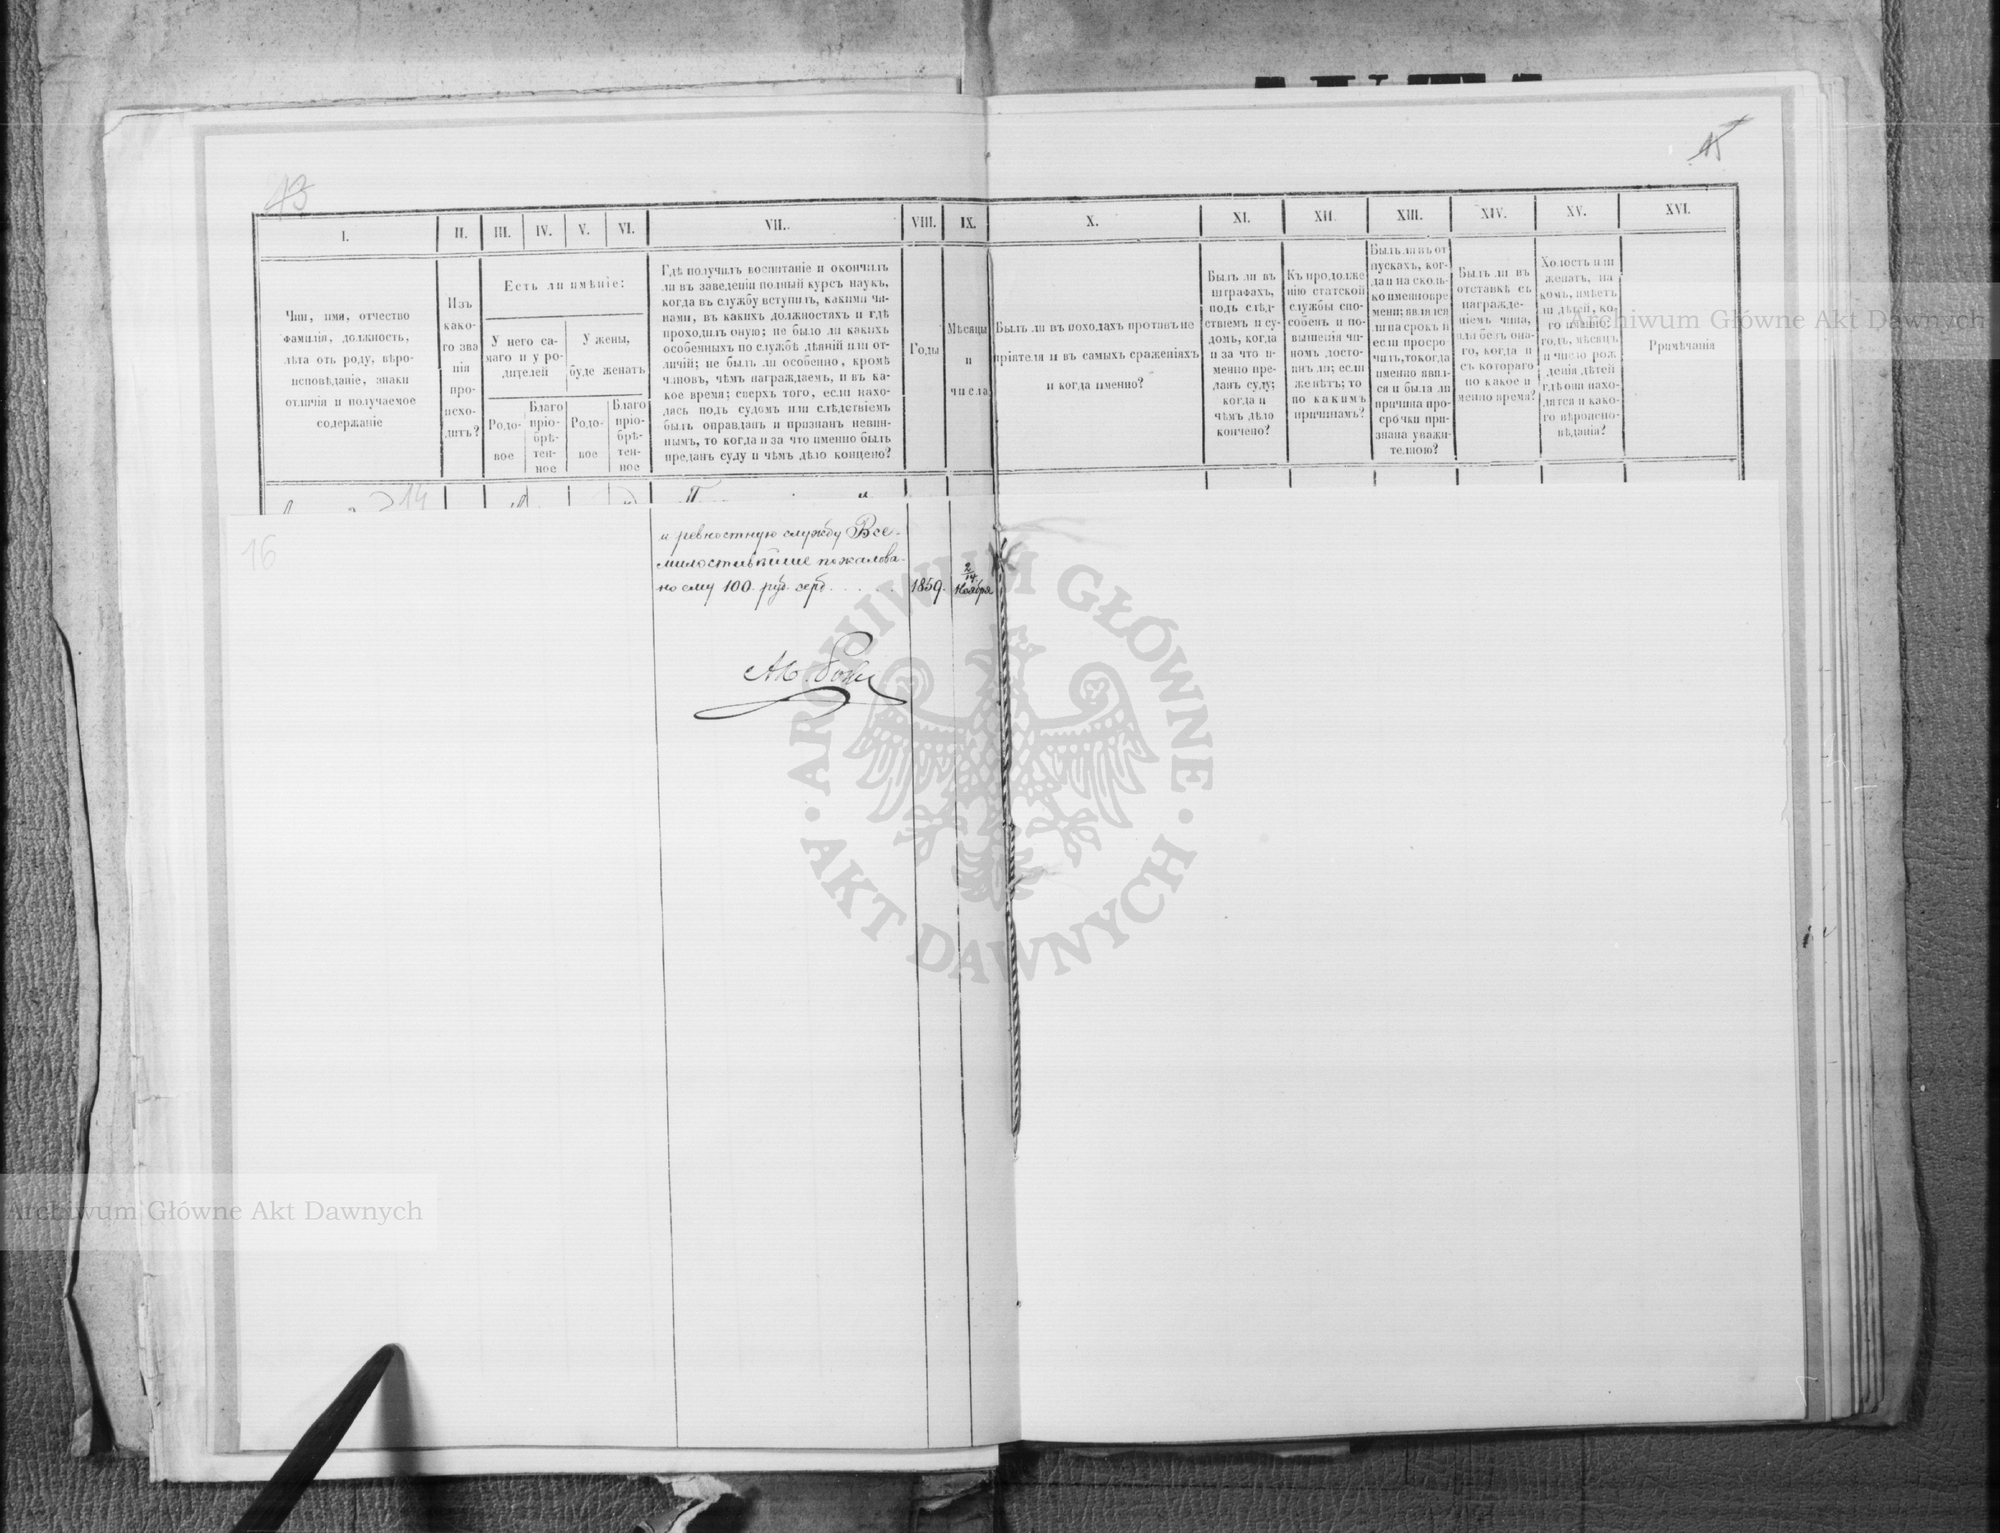 13
15
I.
II.
III.
IV.
V.
VI.
VII.
VIII.
IX.
X.
XI.
XII
XIII.
XIV.
XV.
XVI.
Чин, имя, отчество
фамилія, должность,
лѣта отъ роду, вѣро-
исповѣданіе, знаки
отличія и получаемое
содержаніе
Изъ
како-
го зва
нія
про-
исхо-
дитъ?
Есть ли имѣніе:
У него са-
маго и у ро-
дителей
У жены,
буде женатъ
Родо-
вое
Благо
пріо-
брѣ-
тен-
ное
Родо-
вое
Благо
пріо-
брѣ-
тен-
ное
Гдѣ получилъ воспитаніе и окончилъ
ли въ заведеніи полный курсъ наукъ,
когда въ службу вступилъ, какими чи-
нами, въ какихъ должностяхъ и гдѣ
проходилъ оную; не было ли какихъ
особенныхъ по службѣ дѣяній или от-
личій; не былъ ли особенно, кромѣ
чиновъ, чѣмъ награждаемъ, и въ ка-
кое время; сверхъ того, если нахо-
дясь подъ судомъ или слѣдствіемъ
былъ оправданъ и признанъ невин-
нымъ, то когда и за что именно былъ
преданъ суду и чѣмъ дѣло концено?
Годы
Мѣсяцы
и
числа
Былъ ли въ походахъ противъ не
пріятеля и въ самыхъ сраженіяхъ
и когда именно?
Былъ ли въ
штрафахъ,
подъ слѣд-
ствіемъ и су-
домъ, когда
и за что и-
менно пре-
данъ суду;
когда и
чѣмъ дѣло
кончено?
Къ продолже
нію статской
службы спо-
собенъ и по-
вышенія чи-
номъ досто-
инъ ли; если
же нѣтъ; то
по какимъ
причинамъ?
Былъ ли въ от
пускахъ, ког-
да и на сколь-
ко именно вре-
мени; явился
ли на срокъ и
если просро-
чилъ, то когда
именно явил-
ся и была ли
причина про-
срочки при-
знана уважи-
телною?
Былъ ли въ
отставкѣ съ
награжде-
ніемъ чина,
или безъ она-
го, когда и
съ котораго
по какое и
менно время?
Холостъ или
женатъ, на
комъ, имѣетъ
ли дѣтей, ко-
го именно:
годъ, мѣсяцъ
и число рож
денія дѣтей
гдѣ они нахо-
дятся и како-
го вѣроиспо-
вѣданія?
Примѣчанія
14
16
и ревностную службу Все-
милостивѣйше пожалова-
но ему 100. руб. сер. . . . .
1859.
2/14.
Ноября
Archiwum Główne Akt Dawnych
ARCHIWUM GŁÓWNE · AKT DAWNYCH ·
Archiwum Główne Akt Dawnych